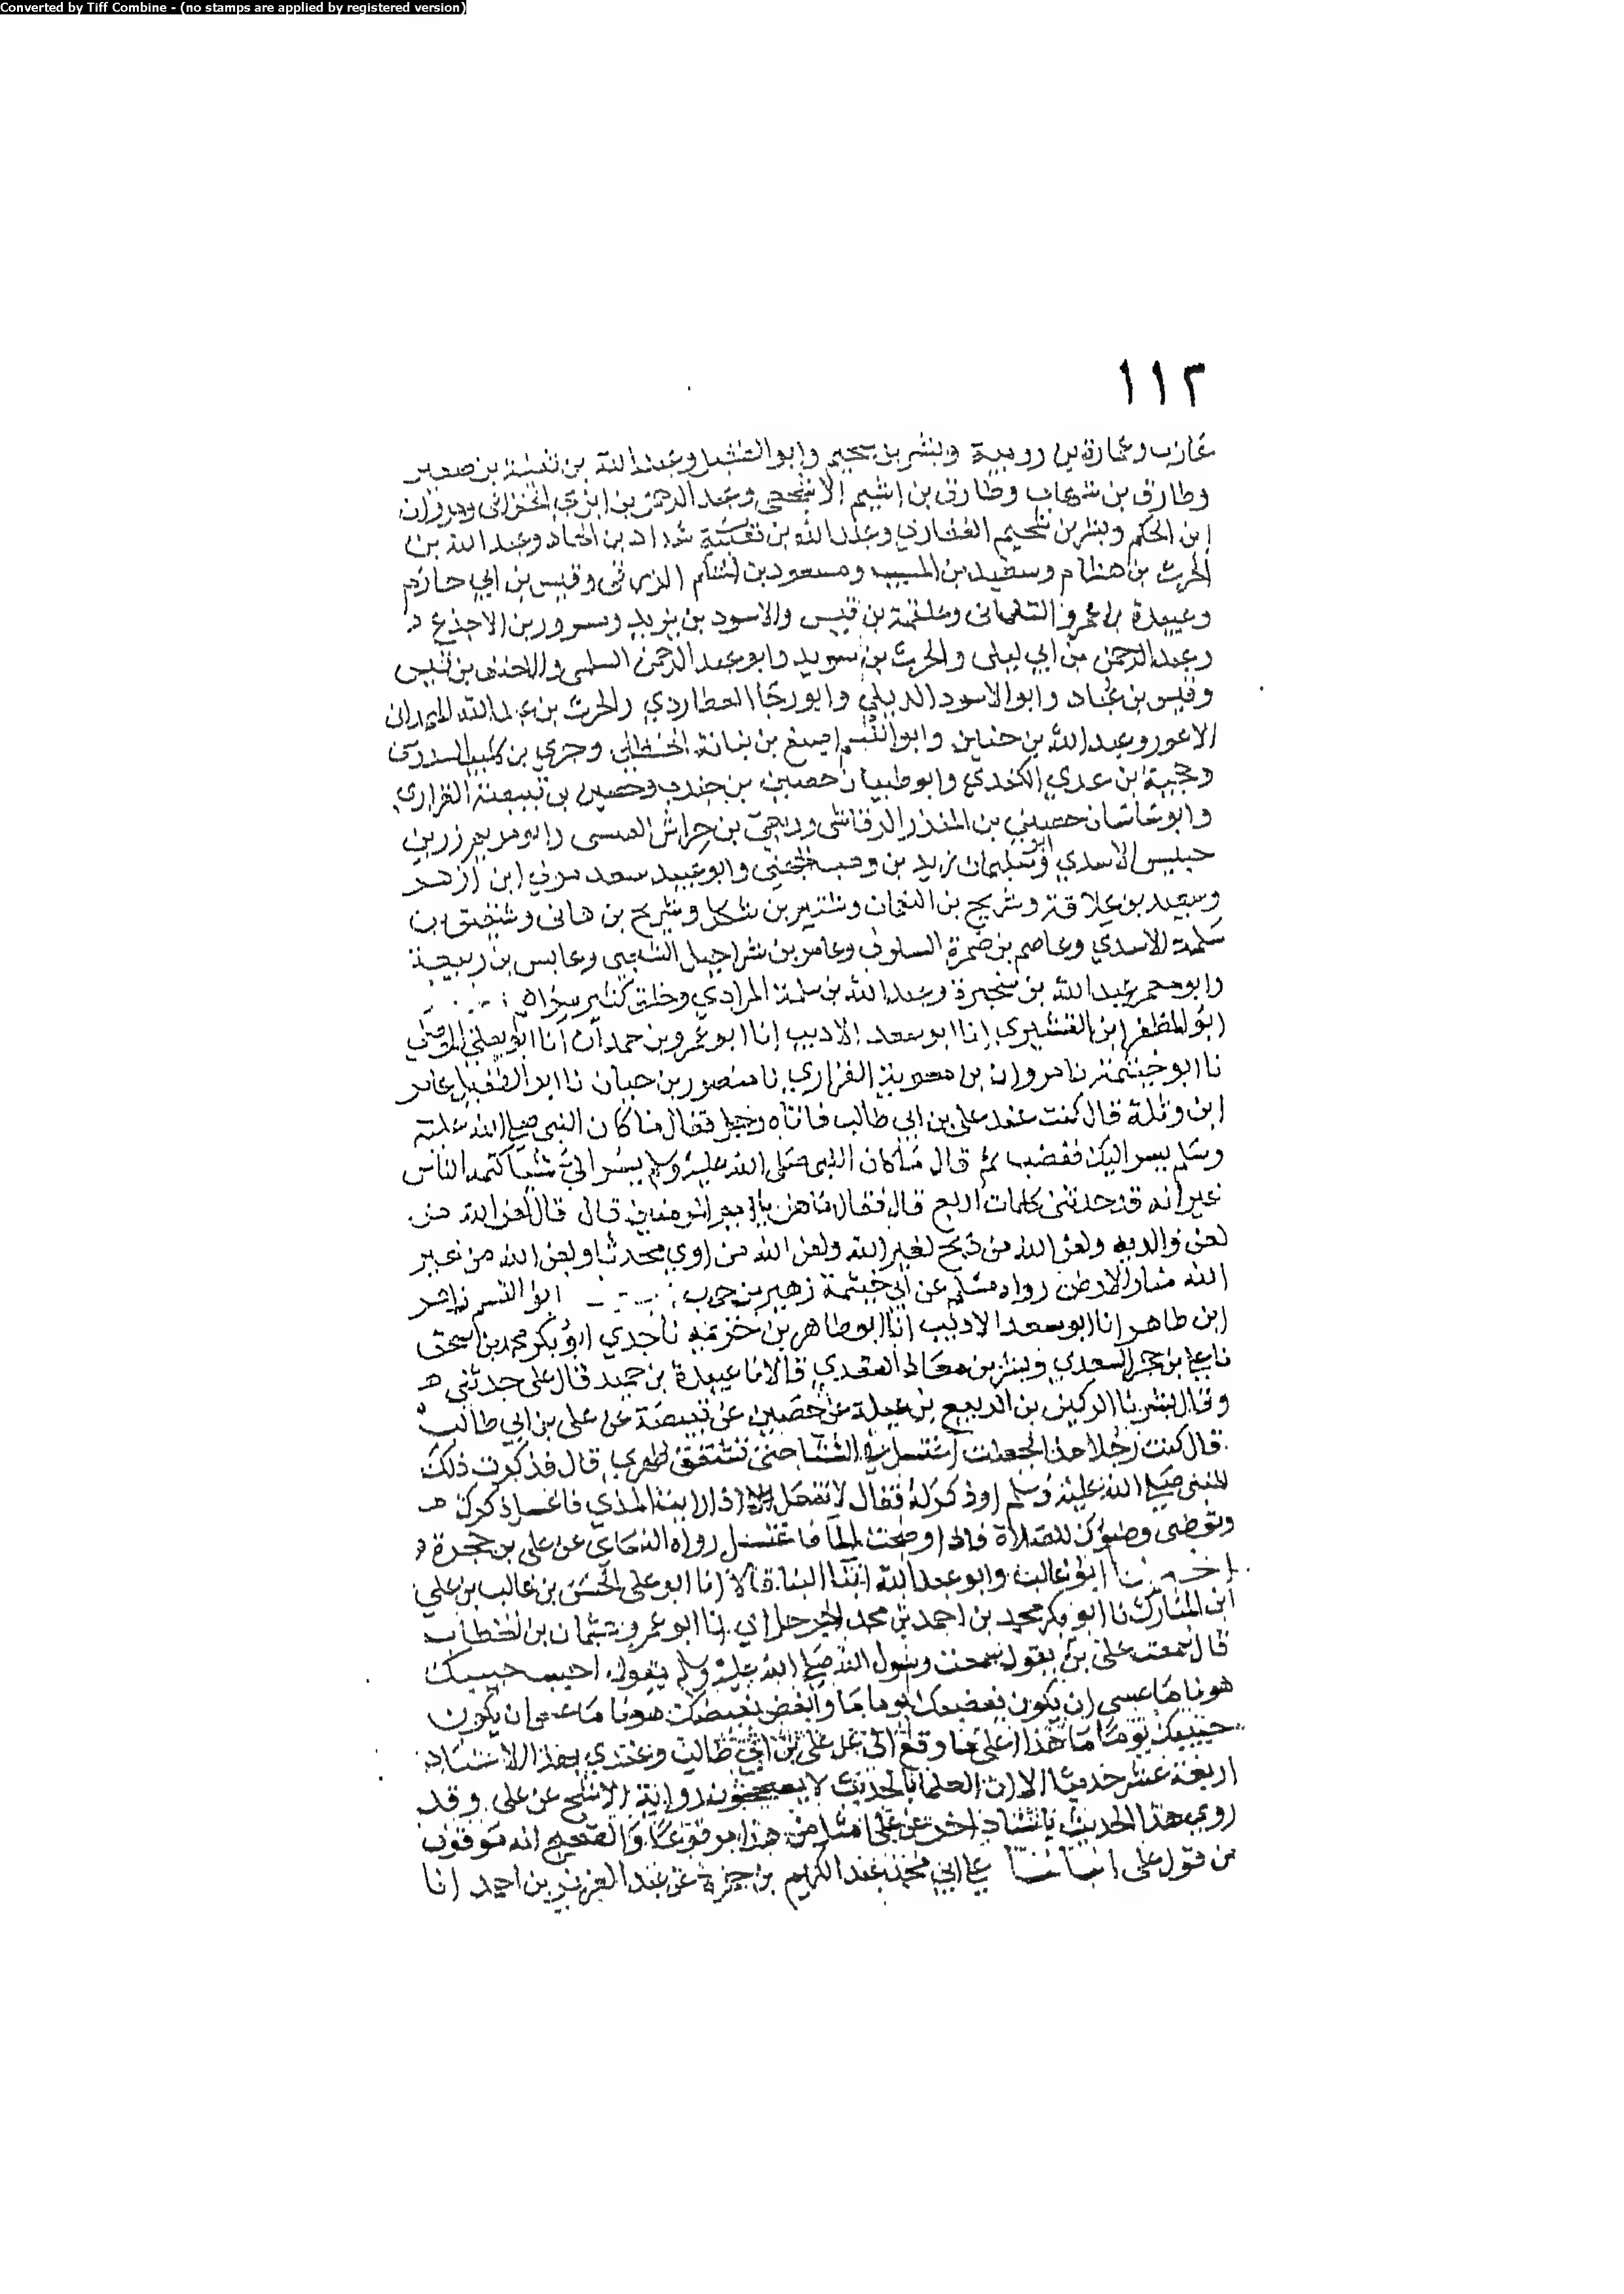 Converted by Tiff Combine - (no stamps are applied by registered version)
١١٢
عازب وعمارة بن رويبة وبشر بن سحيم وابو الطفيل وعبد الله بن ثعلبة بن صعير
وطارق بن شهاب وطارق بن اشيم الاشجعي وعبد الرحمن بن ابزي الخزاعي ومروان
ابن الحكم وبشر بن سحيم الغفاري وعبد الله بن شداد بن الهاد وعبد الله بن
الحرث بن هشام وسعيد بن المسيب ومسعود بن الحكم الزرقي وقيس بن ابي حازم
وعبيدة بن عمرو السلماني وعلقمة بن قيس والاسود بن يزيد ومسروق بن الاجدع
وعبد الرحمن بن ابي ليلى والحرث بن سويد وابو عبد الرحمن السلمي والاحنف بن قيس
وقيس بن عباد وابو الاسود الديلي وابو رجا العطاردي والحرث بن عبد الله الهمداني
الاعور وعبد الله بن حنين وابو القسم اصبغ بن نباتة الحنظلي وجري بن كليب السدوسي
وحجية بن عدي الكندي وابو ظبيان حصين بن جندب وحصين بن قبيصة الفزاري
وابو ساسان حضين بن المنذر الرقاشي وربعي بن حراش العبسي وابو مريم زر بن
حبيش الاسدي وابو سليمان زيد بن وهب الجهني وابو عبيد سعد مولي ابن ازهر
وسعيد بن علاقة وشريح بن النعمان وشتير بن شكل وشريح بن هاني وشقيق بن
سلمة الاسدي وعاصم بن ضمرة السلولي وعامر بن شراحيل الشعبي وعابس بن ربيعة
وابو معمر عبد الله بن سخبرة وعبد الله بن سلمة المرادي وخلق كثير سواهم
ابو المظفر ابن القشيري انا ابو سعد الاديب انا ابو عمرو بن حمدان انا ابو يعلي الموصلي
نا ابو خيثمة نا مروان بن معوية الفزاري نا منصور بن حيان نا ابو الطفيل عامر
ابن وثلة قال كنت عند علي بن ابي طالب فاتاه رجل فقال ما كان النبي صلى الله عليه
وسلم يسر اليك فغضب ثم قال ما كان النبي صلى الله عليه وسلم يسر الي شيا كتمه الناس
غير انه قد حدثني كلمات اربع قال فقال ما هن يا امير المومنين قال قال لعن الله من
لعن والديه ولعن الله من ذبح لغير الله ولعن الله من اوي محدثا ولعن الله من غير
الله منار الارض رواه مسلم عن ابي خيثمة زهير بن حرب ابو القسم زاهر
ابن طاهر انا ابو سعد الاديب انا ابو طاهر بن خزيمة نا جدي ابو بكر محمد بن اسحق
نا علي بن حجر السعدي وبشر بن معاذ العقدي قالا نا عبيدة بن حميد قال علي حدثني
وقال بشر نا الركين بن الربيع بن عميلة عن حصين عن قبيصة عن علي بن ابي طالب
قال كنت رجلا مذا فجعلت اغتسل في الشتا حتى تشقق ظهري قال فذكرت ذلك
للنبي صلى الله عليه وسلم او ذكر له فقال لا تفعل اذا رايت المذي فاغسل ذكرك
وتوضى وضوك للصلاة فاذا نضحت الما فاغتسل رواه النساي عن علي بن حجر
اخبرنا ابو غالب وابو عبد الله ابنا البنا قالا انا ابو علي الحسن بن غالب بن علي
ابن المبارك نا ابو بكر محمد بن احمد بن محمد الجرجراي نا ابو عمرو عثمان بن الخطاب
قال سمعت علي بن يقول سمعت رسول الله صلى الله عليه وسلم يقول احبب حبيبك
هونا ما عسى ان يكون بغيضك يوما ما وابغض بغيضك هونا ما عسى ان يكون
حبيبك يوما ما هذا اعلي ما وقع الي عن علي بن ابي طالب وعندي بهذا الاسناد
اربعة عشر حديثا الا ان العلما بالحديث لا يصححون رواية الاشج عن علي وقد
روي هذا الحديث باسناد اخر عن علي امثل من هذا مرفوعا والصحيح انه موقوف
من قول علي انبانا علي ابي محمد عبد الكريم بن حمزة عن عبد العزيز بن احمد انا